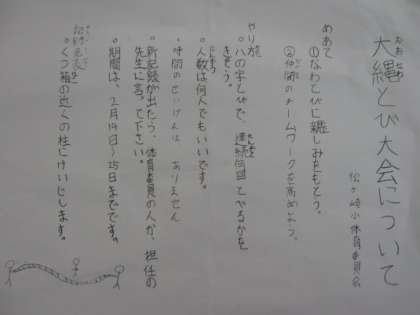 大縄とび大会について
松ヶ崎小体育委員会
めあて
①なわとびに親しみをもとう。
②仲間のチームワークを高めよう。
やり方
・八の字とびで、連続何回とべるかを
きそう。
・人数は何人でもいいです。
・時間のせいげんは ありません
・新記録が出たら、体育委員の人か、担任の
先生に言って下さい。
・期間は、2月14日～25日までです。
・くつ箱の近くの柱にけいじします。